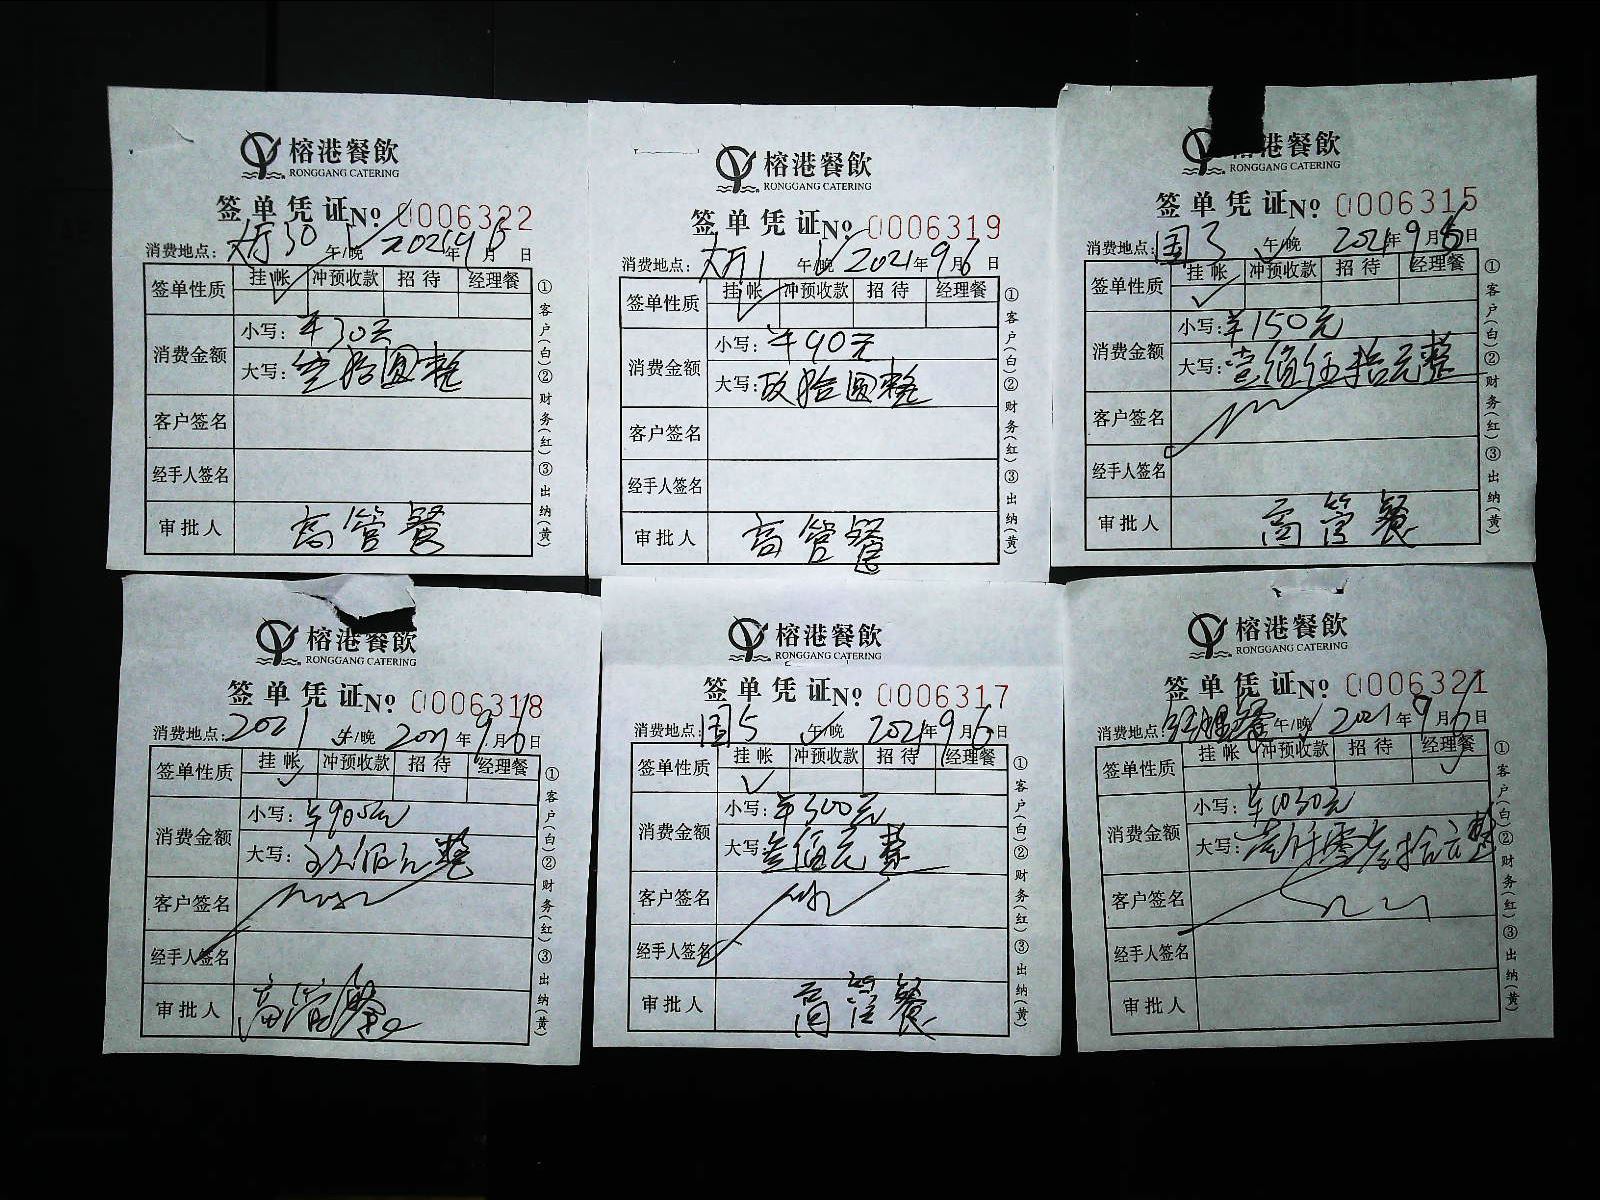 榕港餐飲
RONGGANG CATERING
签单凭证 № 0006322
消费地点: 大厅30 午/晚 2021年9月6日
签单性质 挂帐 冲预收款 招待 经理餐
消费金额 小写: ¥30元
大写: 叁拾圆整
客户签名
经手人签名
审批人 高管餐
①客户(白)②财务(红)③出纳(黄)
榕港餐飲
RONGGANG CATERING
签单凭证 № 0006319
消费地点: 大厅1 午/晚 2021年9月6日
签单性质 挂帐 冲预收款 招待 经理餐
消费金额 小写: ¥90元
大写: 玖拾圆整
客户签名
经手人签名
审批人 高管餐
①客户(白)②财务(红)③出纳(黄)
港餐飲
RONGGANG CATERING
签单凭证 № 0006315
消费地点: 国3 午/晚 2021年9月6日
签单性质 挂帐 冲预收款 招待 经理餐
消费金额 小写: ¥150元
大写: 壹佰伍拾元整
客户签名
经手人签名
审批人 高管餐
①客户(白)②财务(红)③出纳(黄)
榕港餐飲
RONGGANG CATERING
签单凭证 № 0006318
消费地点: 2021 午/晚 2021年9月6日
签单性质 挂帐 冲预收款 招待 经理餐
消费金额 小写: ¥900元
大写: 玖佰元整
客户签名
经手人签名
审批人 高管餐
①客户(白)②财务(红)③出纳(黄)
榕港餐飲
RONGGANG CATERING
签单凭证 № 0006317
消费地点: 国5 午/晚 2021年9月6日
签单性质 挂帐 冲预收款 招待 经理餐
消费金额 小写: ¥300元
大写: 叁佰元整
客户签名
经手人签名
审批人 高管餐
①客户(白)②财务(红)③出纳(黄)
榕港餐飲
RONGGANG CATERING
签单凭证 № 0006321
消费地点: 经理餐 午/晚 2021年9月6日
签单性质 挂帐 冲预收款 招待 经理餐
消费金额 小写: ¥1030元
大写: 壹仟零叁拾元整
客户签名
经手人签名
审批人
①客户(白)②财务(红)③出纳(黄)